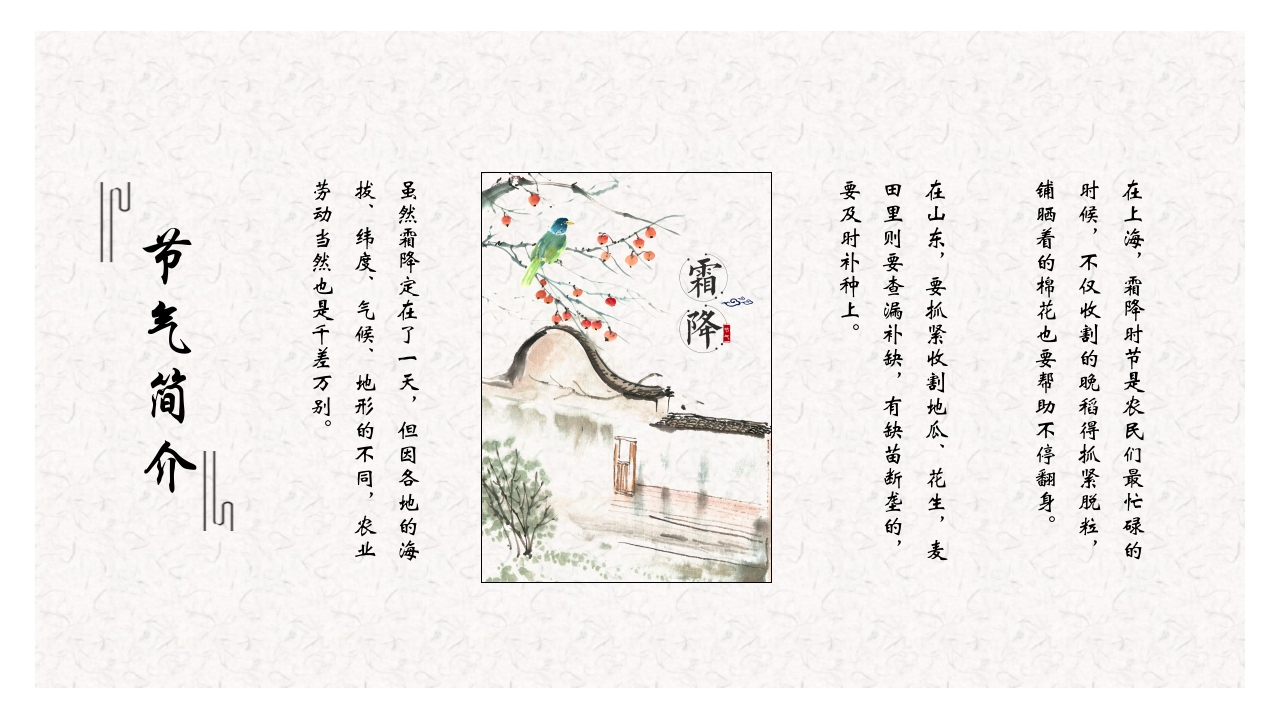 在上海，霜降时节是农民们最忙碌的
时候，不仅收割的晚稻得抓紧脱粒，
铺晒着的棉花也要帮助不停翻身。
在山东，要抓紧收割地瓜、花生，麦
田里则要查漏补缺，有缺苗断垄的，
要及时补种上。
霜
降
虽然霜降定在了一天，但因各地的海
拔、纬度、气候、地形的不同，农业
劳动当然也是千差万别。
节气简介